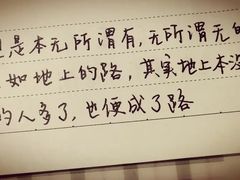 是本无所谓有,无所谓无
如地上的路,其实地上本
的人多了,也便成了路